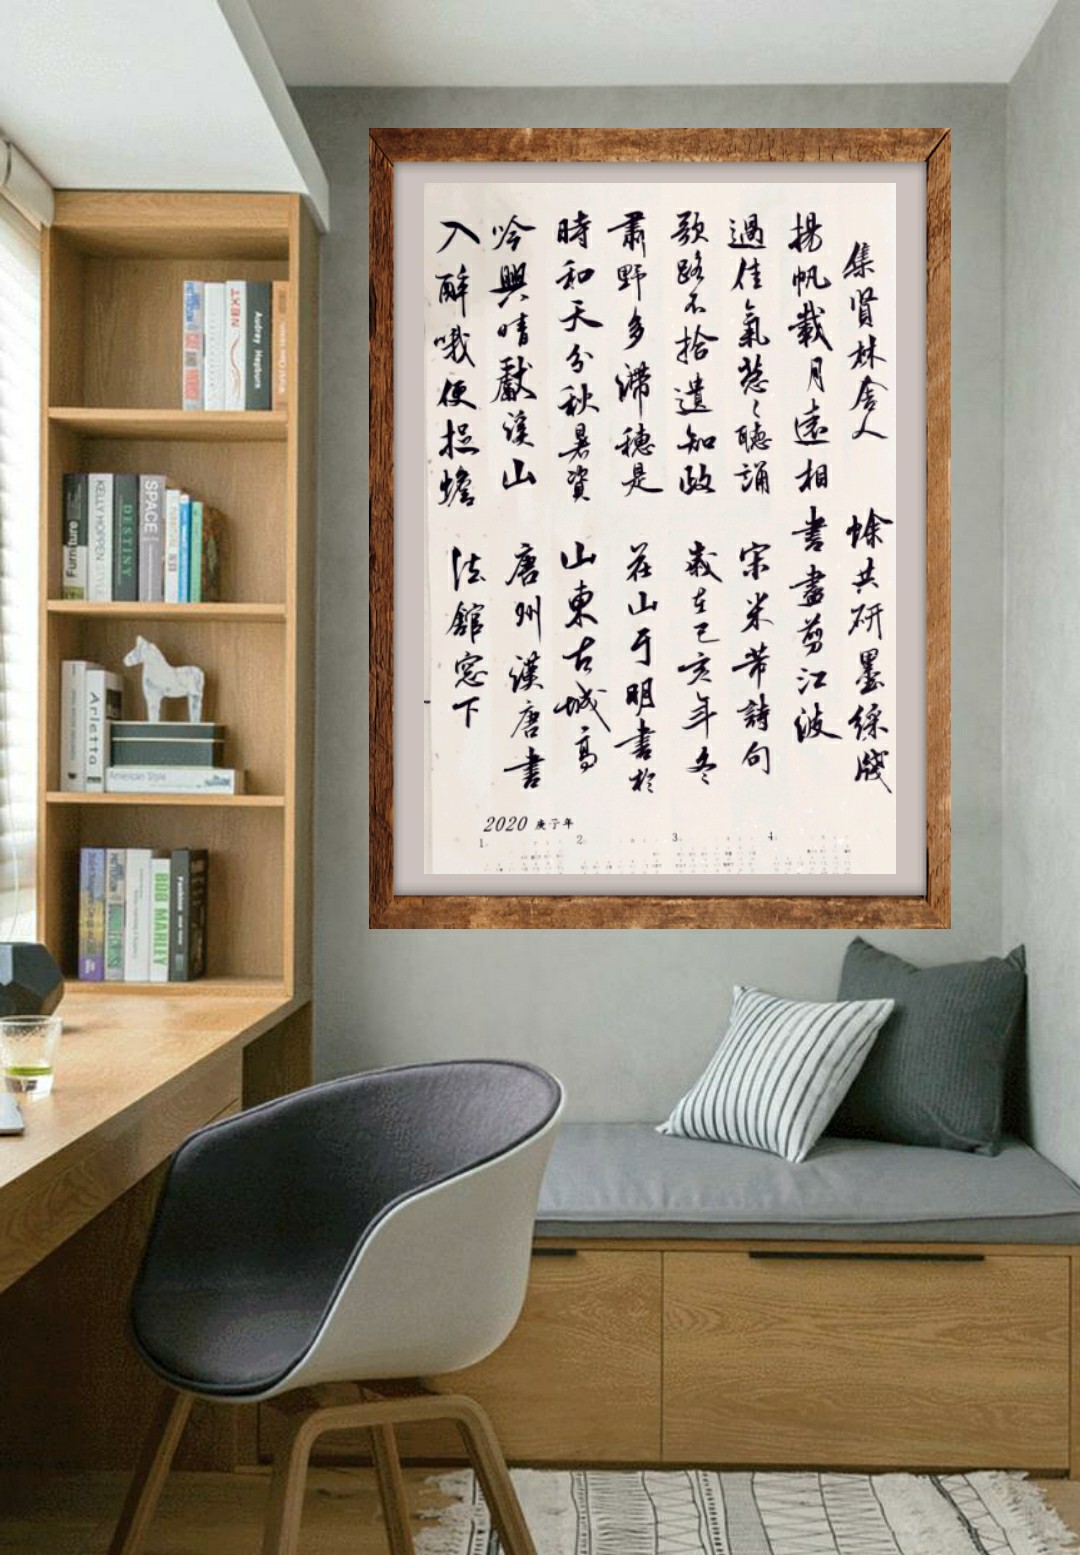 集賢林舍人
揚帆載月遠相
過佳氣葱〻聽誦
歌路不拾遺知政
肅野多滯穗是
時和天分秋暑資
吟興晴獻溪山
入醉哦便捉蟾
蜍共研墨綵牋
書盡剪江波
宋米芾詩句
歲在己亥年冬
莊山于明書於
山東古城高
唐州漢唐書
法館窓下
2020 庚子年
1.
2.
3.
4.
NEXT
Audrey Hepburn
Furniture
KELLY HOPPEN
DESTINY
SPACE
Arletta
American Style
BOB MARLEY